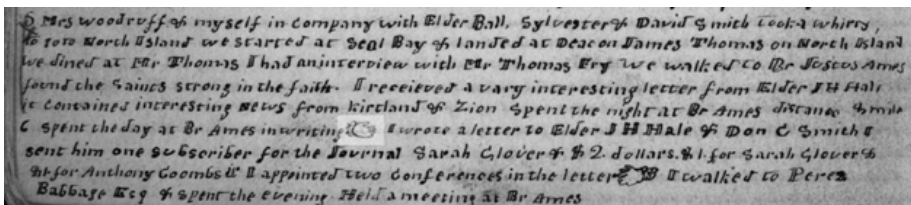 5 Mrs Woodruff & myself in Company with Elder Ball, Sylvester & David Smith took a whirry,
to to North Island we started at Seal Bay & landed at Deacon James Thomas on North Island
we dined at Mr Thomas I had an interview with Mr Thomas Fry we walked to Br Justus Ames
found the Saints strong in the faith. I receieved a vary interesting letter from Elder J H Hale
it contained interesting News from kirtland & Zion Spent the night at Br Ames distance 5 mile
6 Spent the day at Br Ames in writing I wrote a letter to Elder J H Hale & Don C Smith I
sent him one subscriber for the Journal Sarah Glover & $2 dollars. $1. for Sarah Glover &
$1. for Anthony Coombs I appointed two Conferences in the letter I walked to Perez
Babbage Esq & spent the evening. Held a meeting at Br Ames